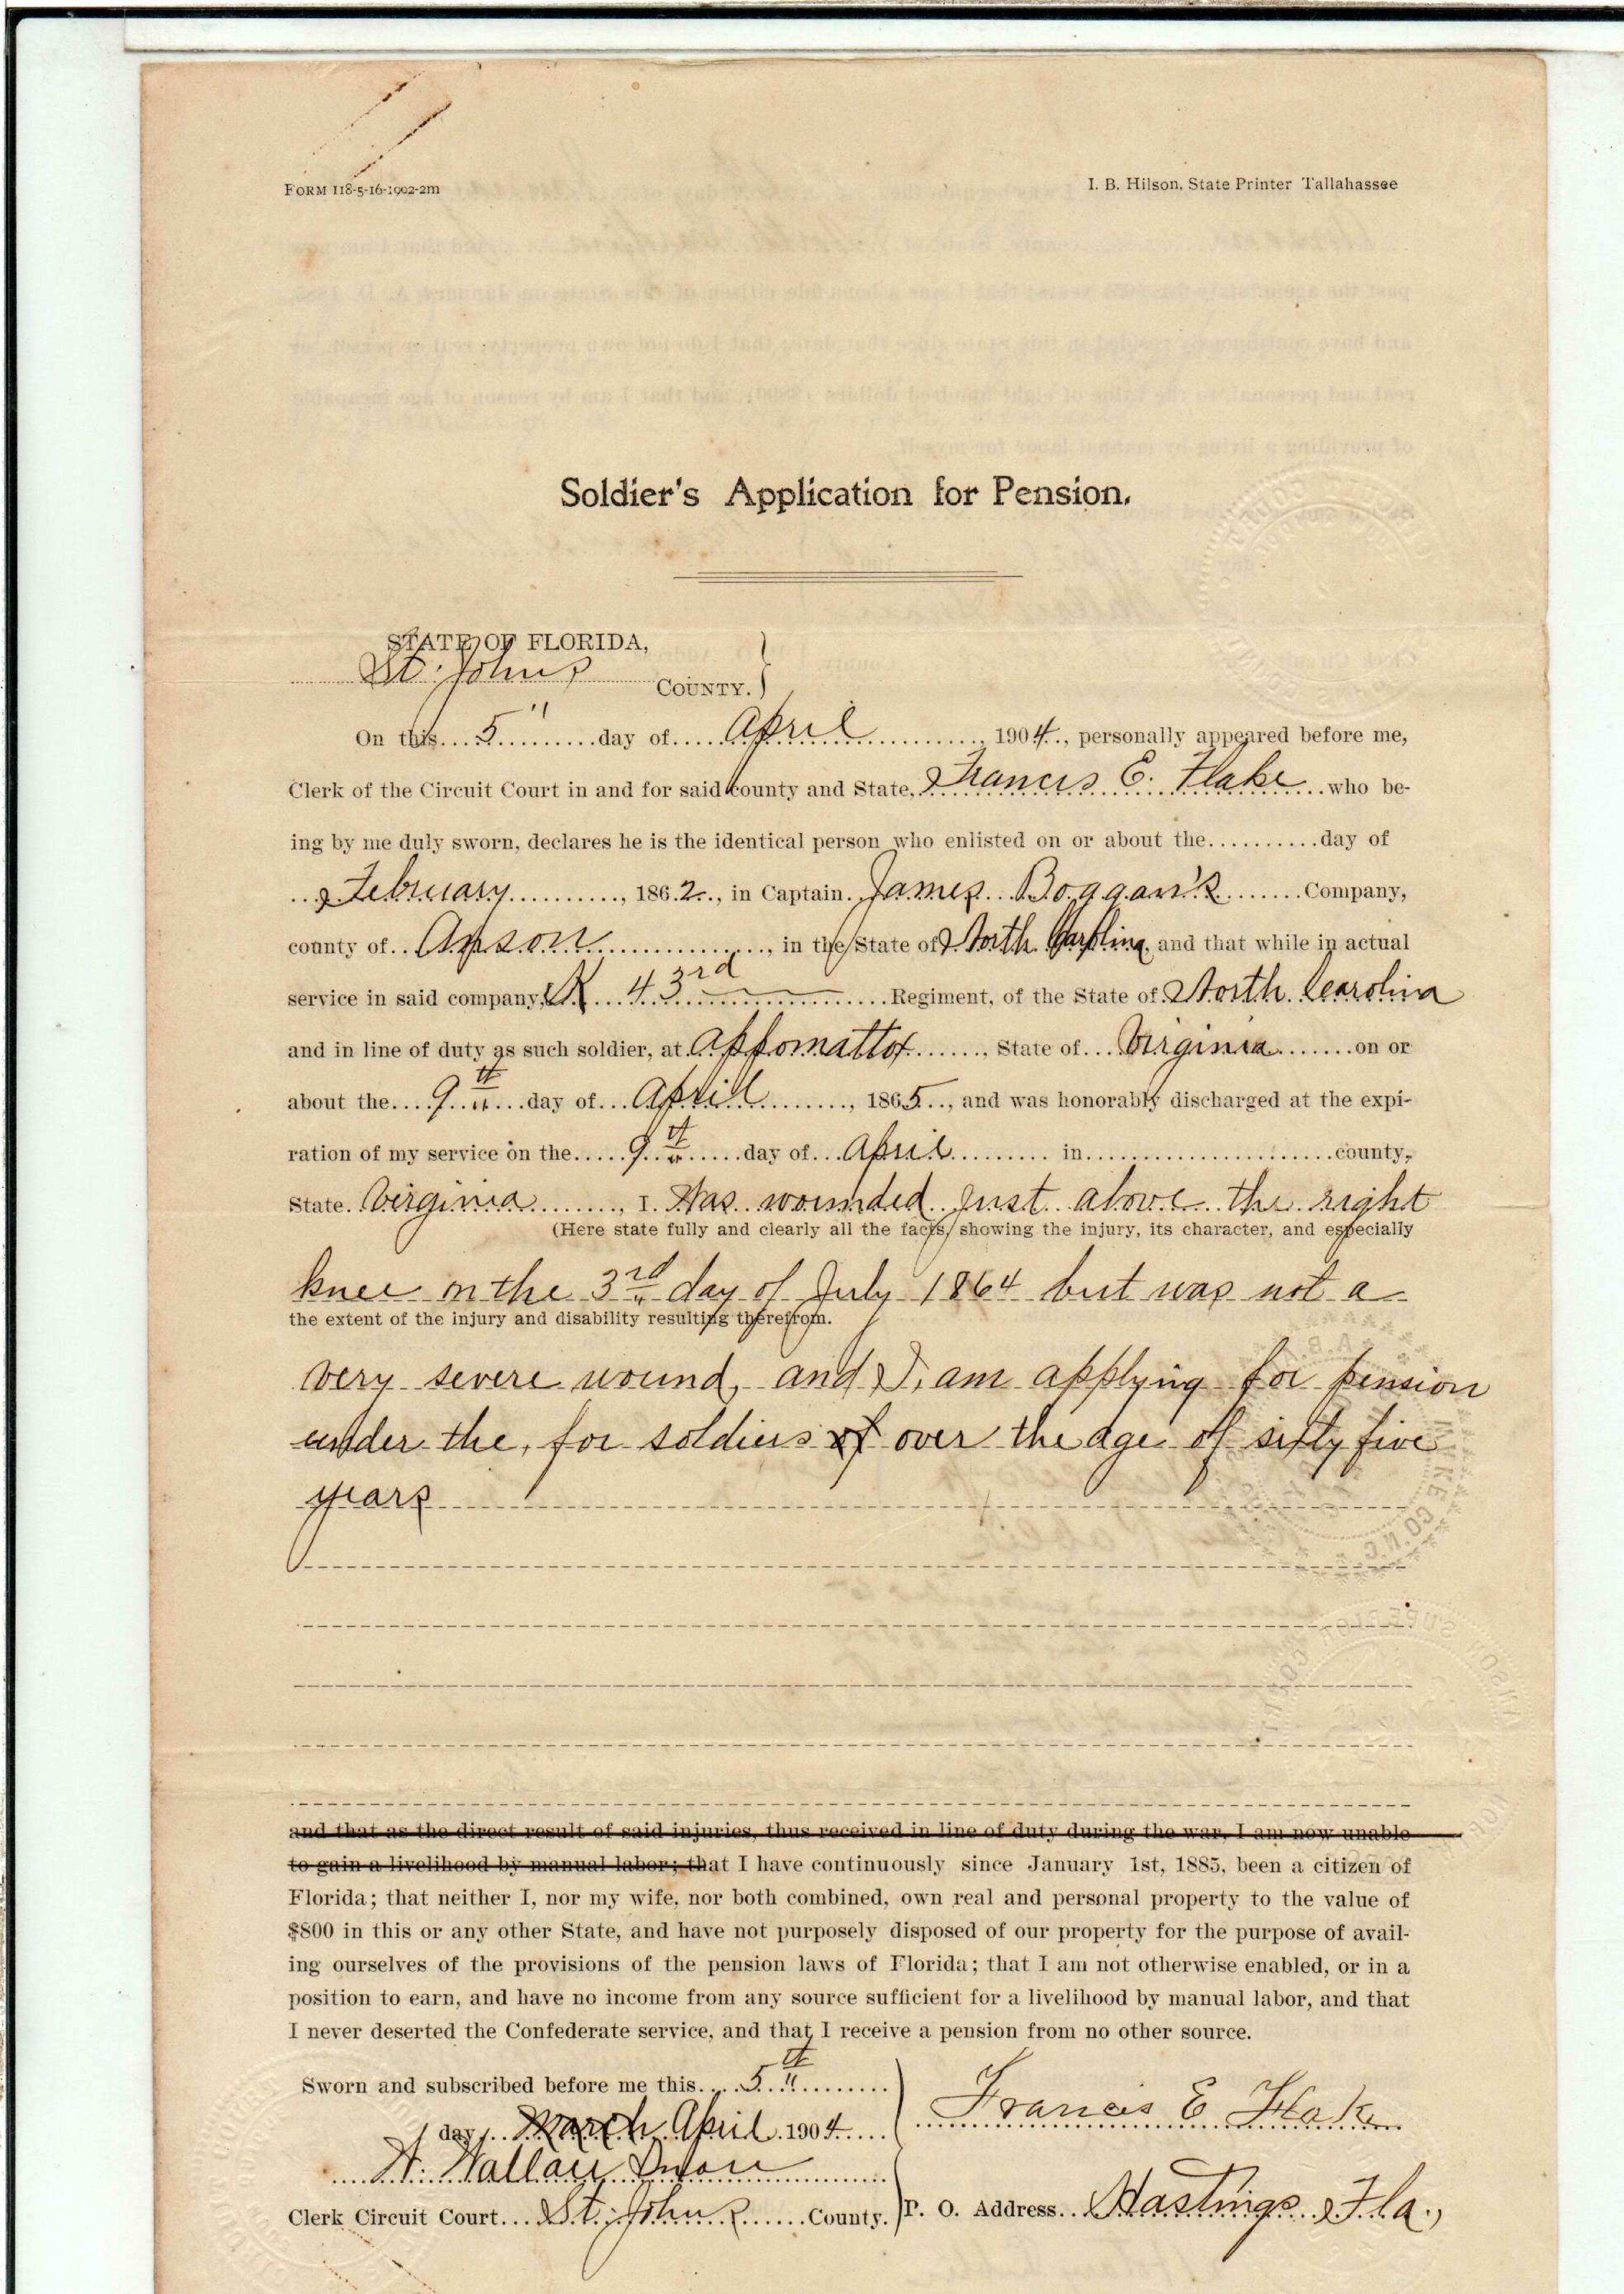 FORM 118-5-16-1902-2m
I. B. Hilson, State Printer Tallahassee
Soldier's Application for Pension.
STATE OF FLORIDA,
St. Johns COUNTY.
On this 5" day of April, 1904, personally appeared before me,
Clerk of the Circuit Court in and for said county and State, Francis E. Flake who be-
ing by me duly sworn, declares he is the identical person who enlisted on or about the..........day of
February, 1862, in Captain James Boggan's Company,
county of Anson, in the State of North Carolina, and that while in actual
service in said company, K 43rd Regiment, of the State of North Carolina
and in line of duty as such soldier, at Appomattox, State of Virginia on or
about the 9th day of April, 1865, and was honorably discharged at the expi-
ration of my service on the 9th day of April in....................county,
State Virginia, I Was wounded Just above the right
(Here state fully and clearly all the facts, showing the injury, its character, and especially
knee on the 3rd day of July 1864 but was not a
the extent of the injury and disability resulting therefrom.
very severe wound, and I, am applying for pension
under the, for soldiers of over the age of sixty five
years
and that as the direct result of said injuries, thus received in line of duty during the war, I am now unable
to gain a livelihood by manual labor; that I have continuously since January 1st, 1885, been a citizen of
Florida; that neither I, nor my wife, nor both combined, own real and personal property to the value of
$800 in this or any other State, and have not purposely disposed of our property for the purpose of avail-
ing ourselves of the provisions of the pension laws of Florida; that I am not otherwise enabled, or in a
position to earn, and have no income from any source sufficient for a livelihood by manual labor, and that
I never deserted the Confederate service, and that I receive a pension from no other source.
Sworn and subscribed before me this 5th
day March April 1904
Francis E Flake
Wallace
Clerk Circuit Court St. Johns County.
P. O. Address Hastings Fla.,